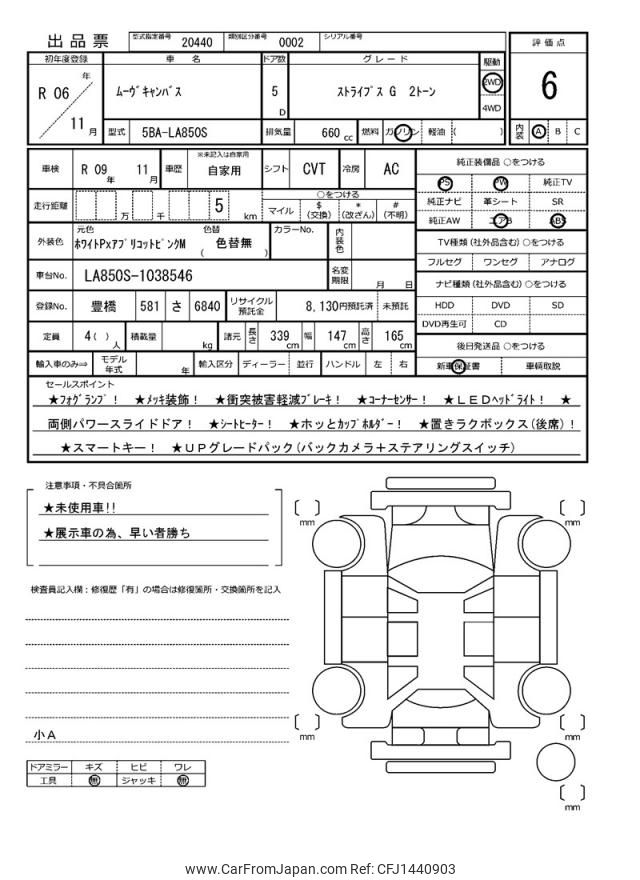 出品票 型式指定番号 20440 類別区分番号 0002 シリアル番号
評価点
6
内装 A B C
初年度登録 車名 ドア数 グレード 駆動
R 06 年 11 月 ﾑｰｳﾞｷｬﾝﾊﾞｽ 5 D ｽﾄﾗｲﾌﾟｽ G 2ﾄｰﾝ 2WD
4WD
型式 5BA-LA850S 排気量 660 cc 燃料 ガソリン 軽油 ( )
車検 R 09 年 11 月 車歴 ※未記入は自家用 自家用 シフト CVT 冷房 AC
走行距離 万 千 5 km ○をつける
マイル $(交換) *(改ざん) #(不明)
外装色 元色 ﾎﾜｲﾄPxｱﾌﾟﾘｺｯﾄﾋﾟﾝｸM 色替 ( 色替無 ) カラーNo. 内装色
車台No. LA850S-1038546 名変期限 月 日
登録No. 豊橋 581 さ 6840 リサイクル預託金 8,130円預託済 未預託
定員 4( ) 人 積載量 kg 諸元 長さ 339 cm 幅 147 cm 高さ 165 cm
輸入車のみ⇒ モデル年式 年 輸入区分 ディーラー 並行 ハンドル 左 右
純正装備品 ○をつける
PS PW 純正TV
純正ナビ 革シート SR
純正AW エアB ABS
TV種類(社外品含む) ○をつける
フルセグ ワンセグ アナログ
ナビ種類(社外品含む) ○をつける
HDD DVD SD
DVD再生可 CD
後日発送品 ○をつける
新車保証書 車輌取説
セールスポイント
★ﾌｫｸﾞﾗﾝﾌﾟ! ★ﾒｯｷ装飾! ★衝突被害軽減ﾌﾞﾚｰｷ! ★ｺｰﾅｰｾﾝｻｰ! ★ＬＥＤﾍｯﾄﾞﾗｲﾄ! ★
両側パワースライドドア! ★ｼｰﾄﾋｰﾀｰ! ★ホッとｶｯﾌﾟﾎﾙﾀﾞｰ! ★置きラクボックス(後席)!
★スマートキー! ★ＵＰグレードパック(バックカメラ＋ステアリングスイッチ)
注意事項・不具合箇所
★未使用車!!
★展示車の為、早い者勝ち
検査員記入欄：修復歴「有」の場合は修復箇所・交換箇所を記入
小A
ドアミラー キズ ヒビ ワレ
工具 無 ジャッキ 無
[ ] mm
[ ] mm
[ ] mm
[ ] mm
[ ] mm
www.CarFromJapan.com Ref: CFJ1440903